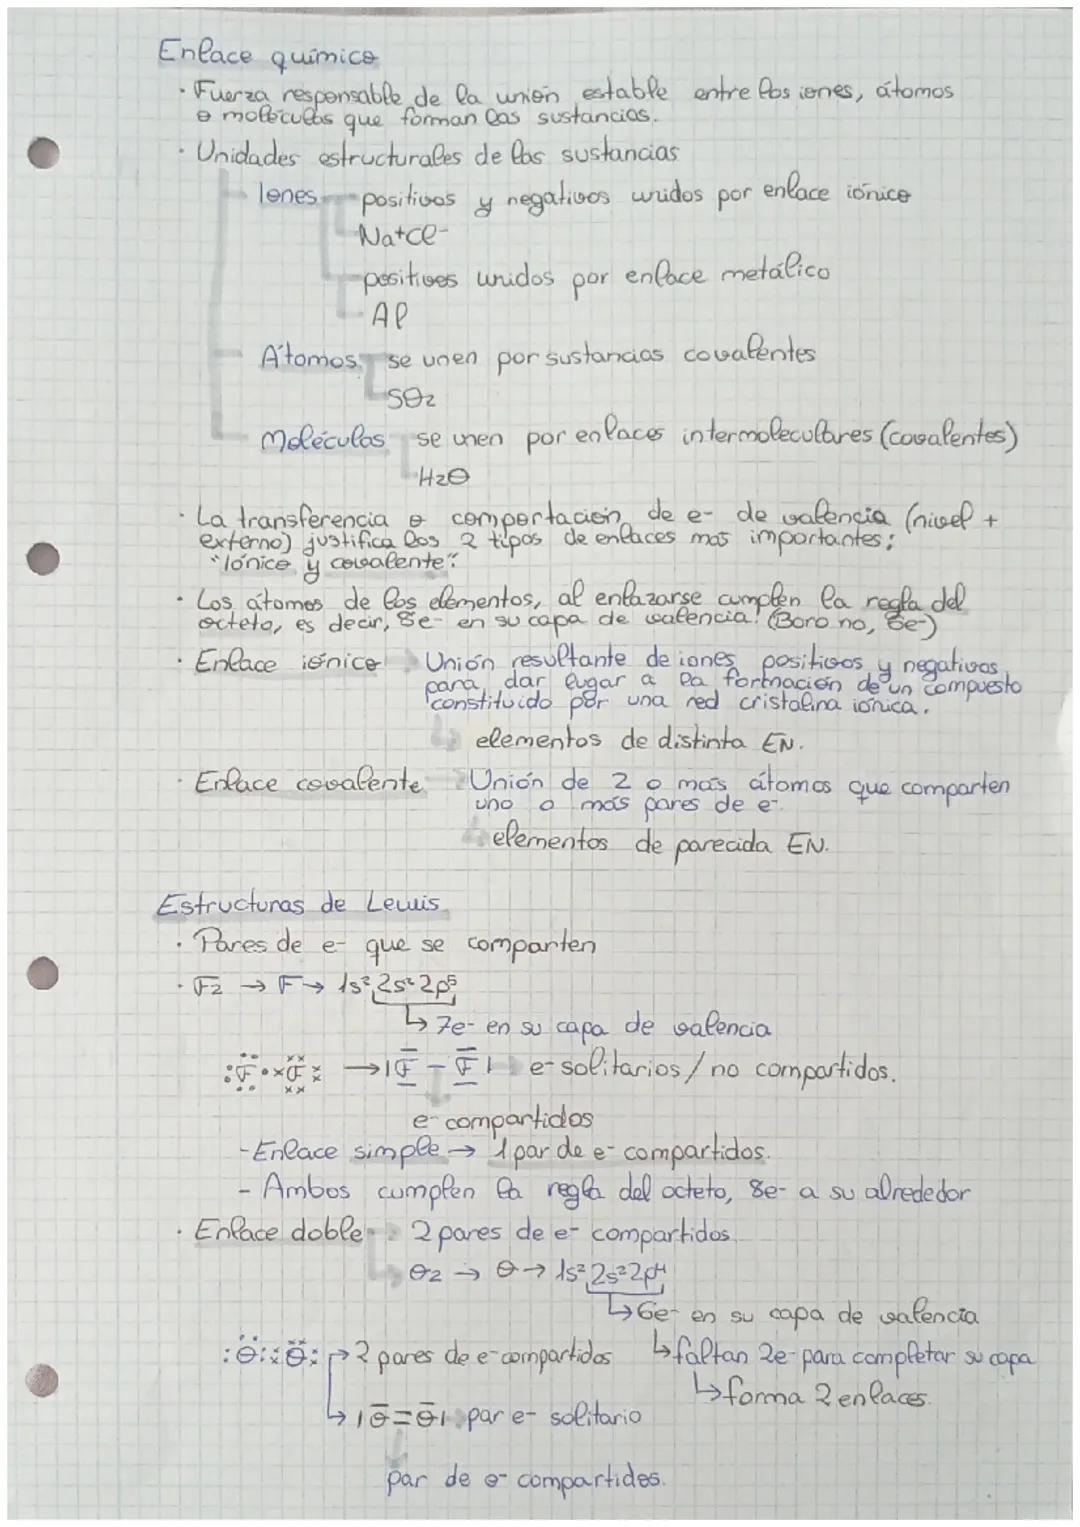 Enlace químico
· Fuerza responsable de la unión estable entre los iones, átomos
o moléculas que forman las sustancias.
· Unidades estructurales de las sustancias
Iones positivos y negativos unidos por enlace iónico
Na+Cl-
positivos unidos por enlace metálico
Al
Átomos se unen por sustancias covalentes
SO2
Moléculas se unen por enlaces intermoleculares (covalentes)
H2O
· La transferencia o comportación de e- de valencia (nivel +
externo) justifica los 2 tipos de enlaces mas importantes:
"Iónico y covalente".
· Los átomos de los elementos, al enlazarse cumplen la regla del
octeto, es decir, 8e- en su capa de valencia! (Boro no, 6e-)
· Enlace iónico Unión resultante de iones positivos y negativos
para dar lugar a la formación de un compuesto
constituido por una red cristalina iónica.
↳ elementos de distinta EN.
· Enlace covalente Unión de 2 o mas átomos que comparten
uno o más pares de e-.
↳ elementos de parecida EN.
Estructuras de Lewis
· Pares de e- que se comparten
· F2 → F → 1s² 2s² 2p⁵
↳ 7e- en su capa de valencia
:F·×F: → |F – F| e- solitarios / no compartidos.
e- compartidos
- Enlace simple → 1 par de e- compartidos.
- Ambos cumplen la regla del octeto, 8e- a su alrededor
· Enlace doble 2 pares de e- compartidos.
↳ O2 → O → 1s² 2s² 2p⁴
↳ 6e- en su capa de valencia
:O::O: → 2 pares de e- compartidos ↳ faltan 2e- para completar su capa
↳ forma 2 enlaces.
↳ |O=O| par e- solitario
par de e- compartidos.